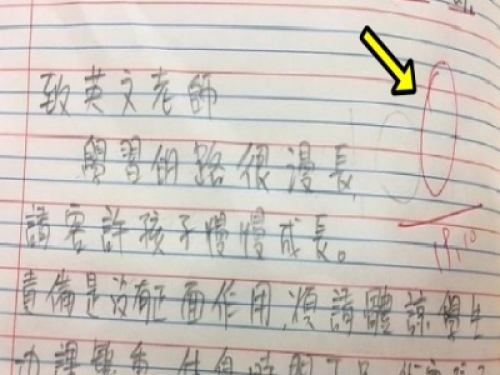 致英文老師
學習的路很漫長
請容許孩子慢慢成長。
19/10
責備是沒有正面作用,煩請體諒學生
功課